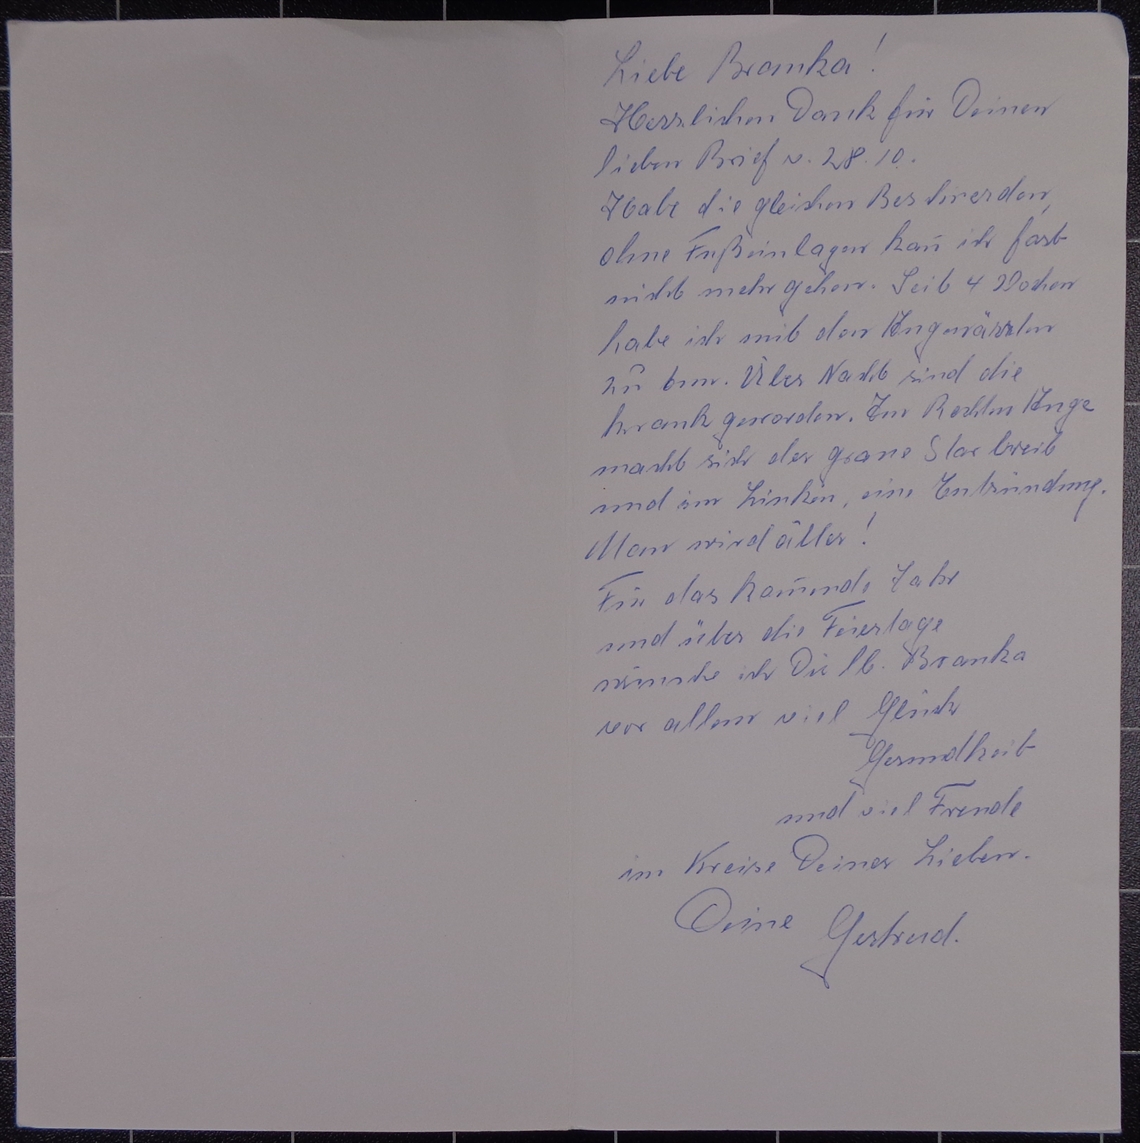 Liebe Branka!
Herzlichen Dank für Deinen
lieben Brief v. 28.10.
Habe die gleichen Beschwerden,
ohne Fußeinlagen kan̄ ich fast
nicht mehr gehen. Seit 4 Wochen
habe ich mit den Augenärzten
zu tun. Über Nacht sind die
krank geworden. Im Rechten Auge
macht sich der graue Star breit
und im Linken, eine Entzündung.
Man wird älter!
Für das kom̄ende Jahr
und über die Feiertage
wünsche ich Dir lb. Branka
vor allem viel Glück
Gesundheit
und viel Freude
im Kreise Deiner Lieben.
Deine Gertrud.